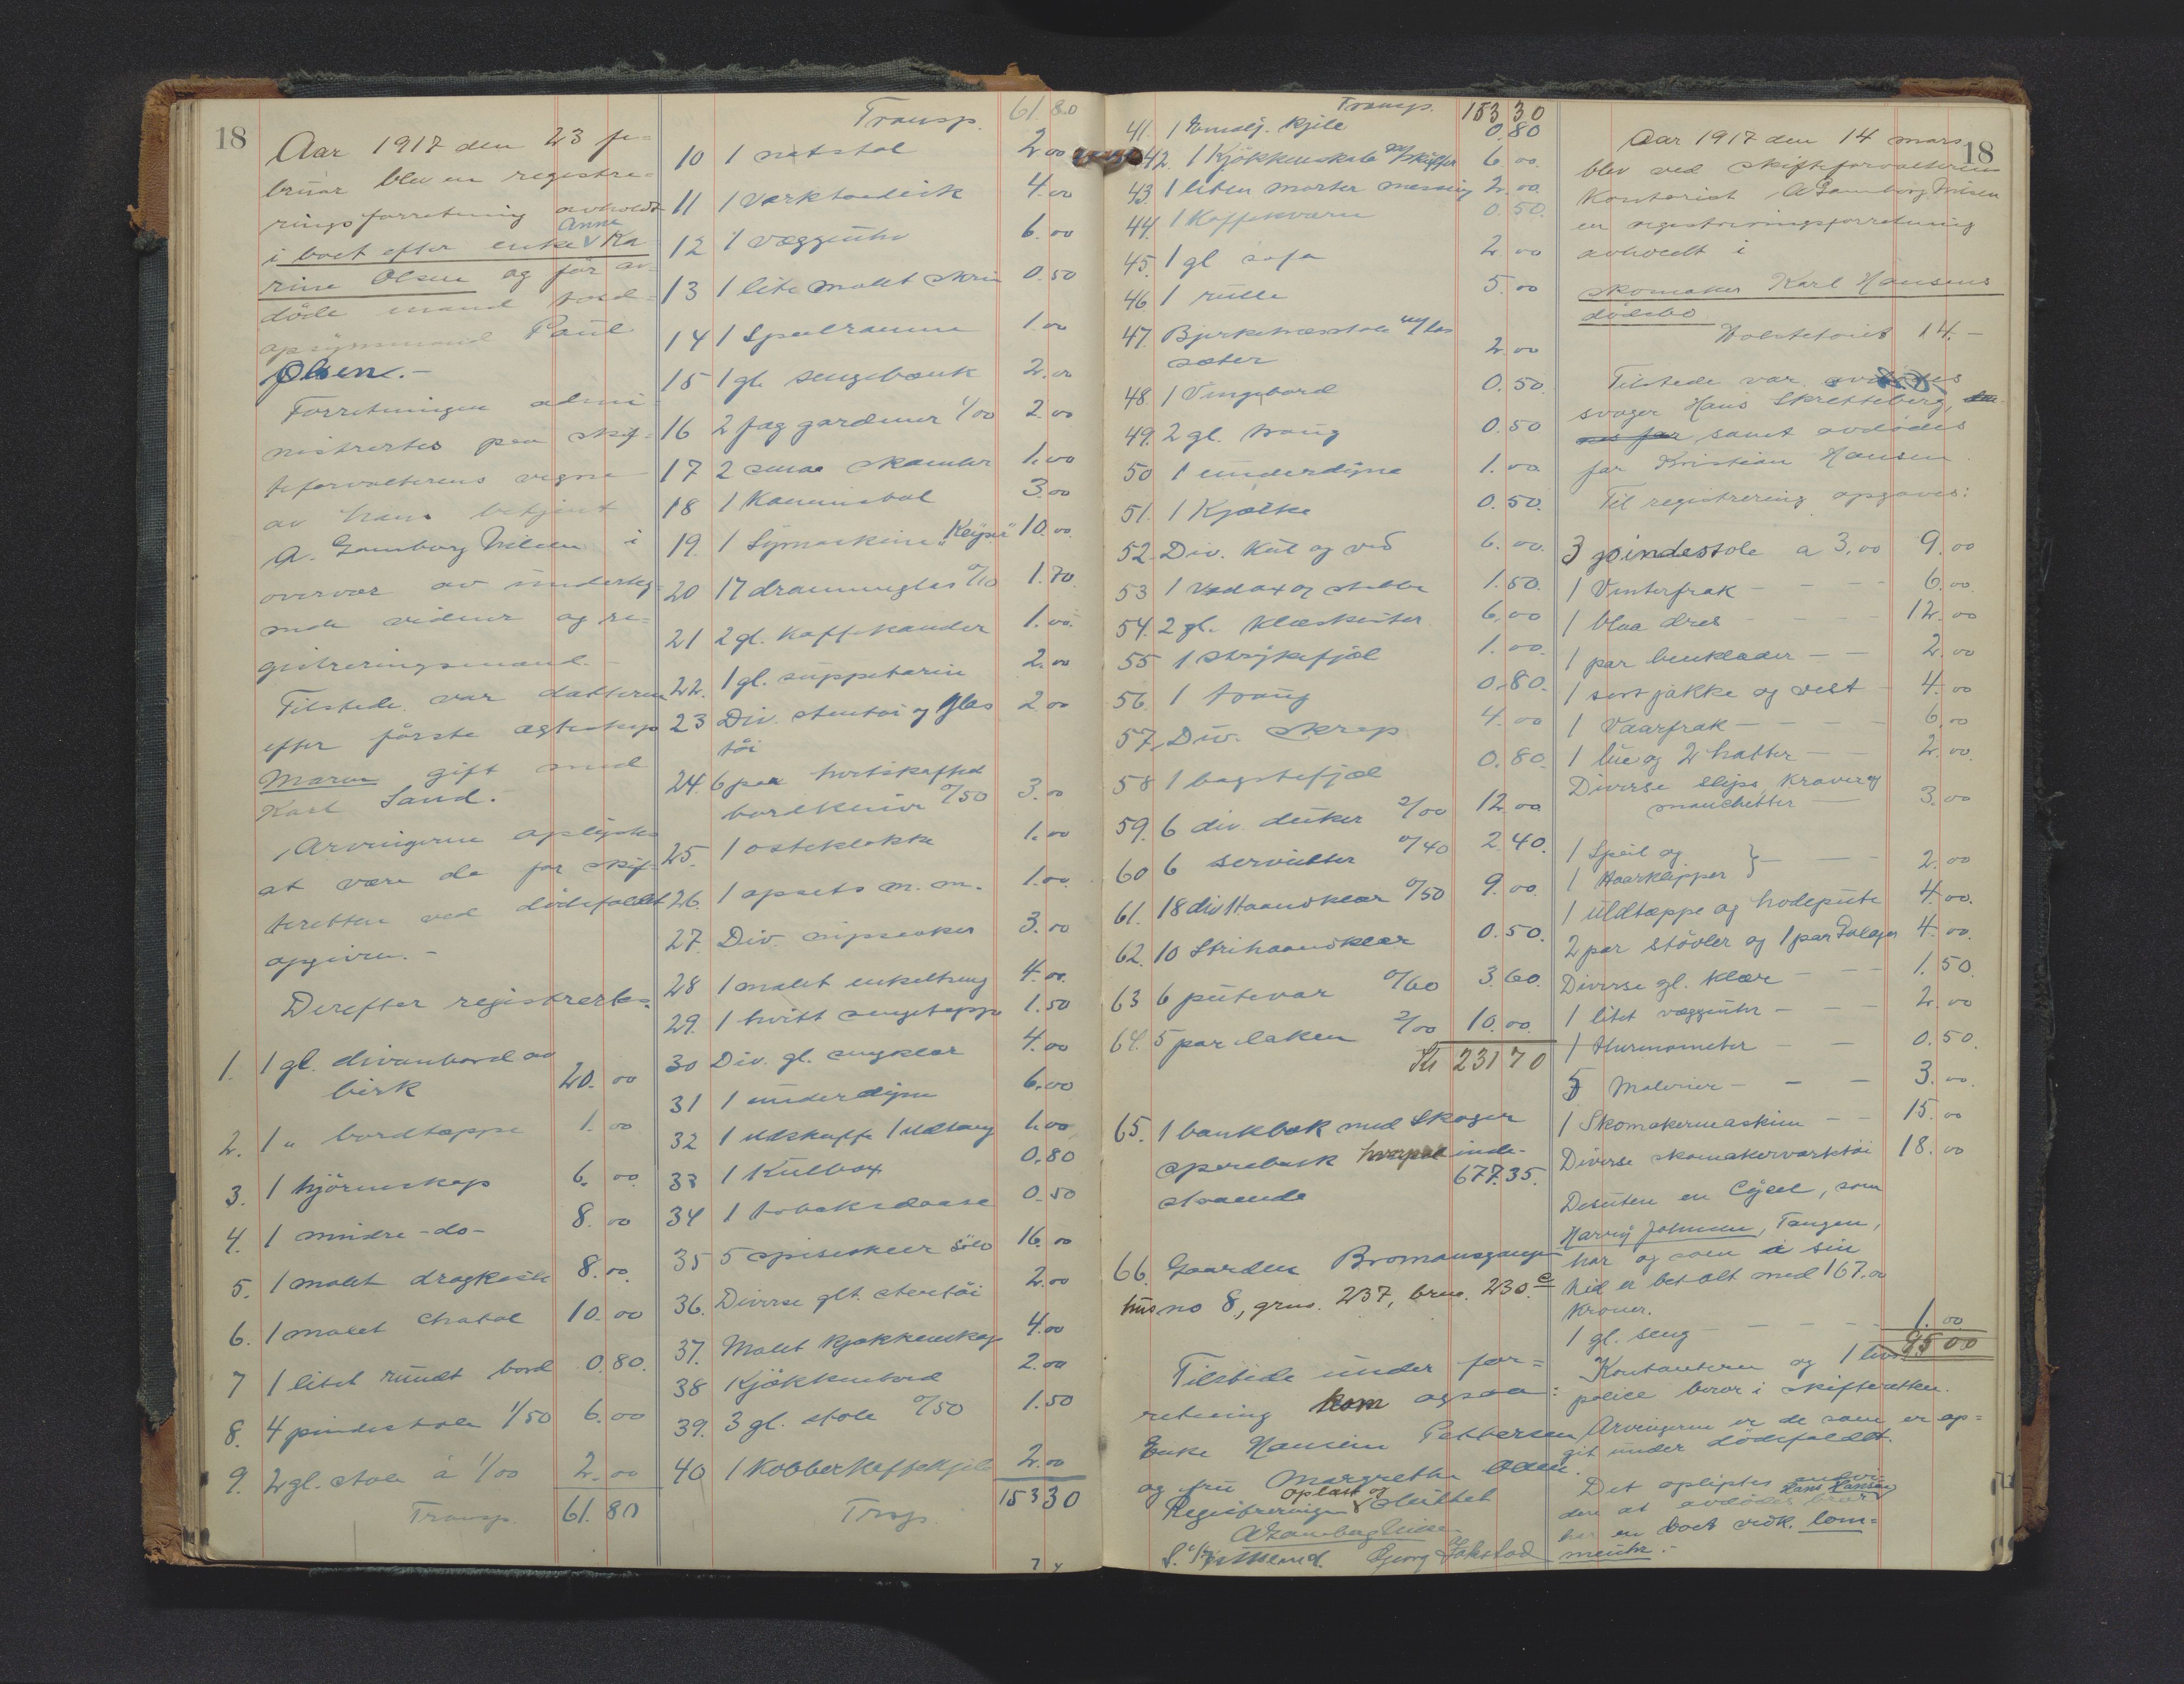 18
Aar 1917 den 23 fe=
bruar blev en registre=
ringsforretning avholdt
Anne
i boet efter enke Ka
rine Olsen og før av=
døde mand
opsynsmand Paul
Olsen.-
Forretningen admi
nistrertes paa skif=
teforvalterens vegne
av hans betjent
A. Gamborg Nilsen i
overvær av underteg=
nede vidner og re=
gistreringsmænd.-
Tilstede var datteren
efter første egteskap
Maren gift med
Karl Sand.
Arvingerne oplystes
at være de for skif=
teretten ved dødsfaldet
opgivne.-
Derefter registrertes.
1. 1 gl. divanbord av
birk 20.00
2. 1 " bordtæppe 1.00
3. 1 hjørneskap 6.00
4. 1 mindre -do- 8.00
5. 1 malt dragkiste 8.00
6. 1 malet chatol 10.00
7 1 litet rundt bord 0.80.
8. 4 pindestole 1/50 6.00
9. 2 gl. stole à 1/00 2.00
Transp. 61.80
Transp. 61.80
10 1 natstol 2.00
11 1 værktøidisk 4.00
12 1 vægguhr 6.00
13 1 lite malet skrin 0.50
14 1 Speilramme 1.00
15 1 gl. sengebænk 2.00
16 2 fag gardiner 1/00 2.00
17 2 smaa skamler 1.00
18 1 Kaminstol 3.00
19. 1 Symaskine "Keyser" 10.00
20 17 dramneglas 0/10 1.70
21 2 gl. kaffekander 1.00
22. 1 gl. suppeterin 2.00
23 Div. stentøi og glas 2.00
tøi
24. 6 par hvitskafted
bordkniver 0/50 3.00
25. 1 osteklokke 1.00
26. 1 opsats m.m. 1.00
27. Div. nipssaker 3.00
28 1 malet enkeltseng 4.00
29. 1 hvitt sengetæppe 1.50
30 Div. gl. sengklær 4.00
31 1 underdyne 6.00
32 1 ildskuffe 1 ildtang 1.00
33 1 Kulbox 0.80
34 1 tobaksdaase 0.50
35 5 spiseskeer sølv 16.00
36. Diverse glt. stentøi 2.00
37. Malet kjøkkenskap 4.00
38 Kjøkkenbord 2.00
39. 3 gl. stole 0/50 1.50
40 1 Kobberkaffekjele 2.00
Trsp. 153 30
Transp. 153 30
41. 1 Emalj. kjele 0.80
42. 1 Kjøkkenskab m/skuffer 6.00
43. 1 liten morter messing 2.00
44. 1 Kaffekværn 0.50.
45. 1 gl sofa 2.00
46 1 rulle 5.00
47. Bjerketræsstole m/løs
sæter 2.00
48. 1 Vingebord 0.50
49. 2 gl. traug 0.50
50 1 underdyne 1.00
51. 1 Kjælke 0.50.
52. Div. Kul og ved 6.00.
53 1 vedøx og stabbe 1.50.
54. 2 gl. klæskister 6.00
55 1 strykefjøl 1.00.
56. 1 traug 0.80.
57, Div. skrap 4.00
58 1 bagstefjøl 0.80.
59. 6 div. duker 2/00 12.00
60 6 servietter 0/40 2.40.
61. 18 div Haandklær 0/50 9.00.
62. 10 Strihaandklær 0.50.
63 6 putevar 0/60 3.60.
64. 5 par laken 2/00 10.00.
Kr 231 70
65. 1 bankbok med Skoger
sparebank hvorpaa inde-
staaende 677.35.
66. Gaarden Bromansgangen
hus no 8, grno. 237, brno. 230.c
Tilstede under for=
retning kom ogsaa:
Enke Hansine Pettersen
og fru Margrethe Olsen.
oplæst og
Registreringen sluttet
A Gamborg Nilsen
Georg Jakstad
18
Aar 1917 den 14 mars
blev ved skifteforvalteren
Kontorist A Gamborg Nilsen
en registreringsforretning
avholdt i
skomaker Karl Hansens
dødsbo
Tolstetoiet 14.-
Tilstede var avdødes
svoger Hans Skretteberg,
samt avdødes
far Kristian Hansen.
Til registrering opgaves:
3 pindestole a 3,00 9.00
1 Vinterfrak - - - 6.00
1 blaa dres - - - 12.00
1 par benklæder - - 2.00
1 sort jakke og vest - 4.00
1 Vaarfrak - - - - 6.00
1 lue og 2 hatter - - 2.00.
Diverse slips, kraver og
manchetter - 3.00
1 Speil og
1 Haarklipper } - - - 2.00
1 uldtæppe og hodepute 4.00.
2 par støvler og 1 par Galoger 4.00.
Diverse gl. klær - - - 1.50.
1 litet vægguhr - - 2.00
1 thermometer - - 0.50.
5 Malerier - - - 3.00.
1 Skomakermaskine - - 15.00
Diverse skomakerværktøi 18.00
Desuten en Cykel, som
Harry Johnsen, Tangen,
har og som i sin
tid er betalt med 167.00
Kroner.
1 gl. seng - - - - 1.00
95 00
Kontanterne og 1 livs
police beror i skifteretten.
Arvingerne er de som er op=
git under dødsfaldet.
Det oplystes endvi=
Hans Hansen
dere at avdødes bror
har en boet vedk. lom=
meuhr.-